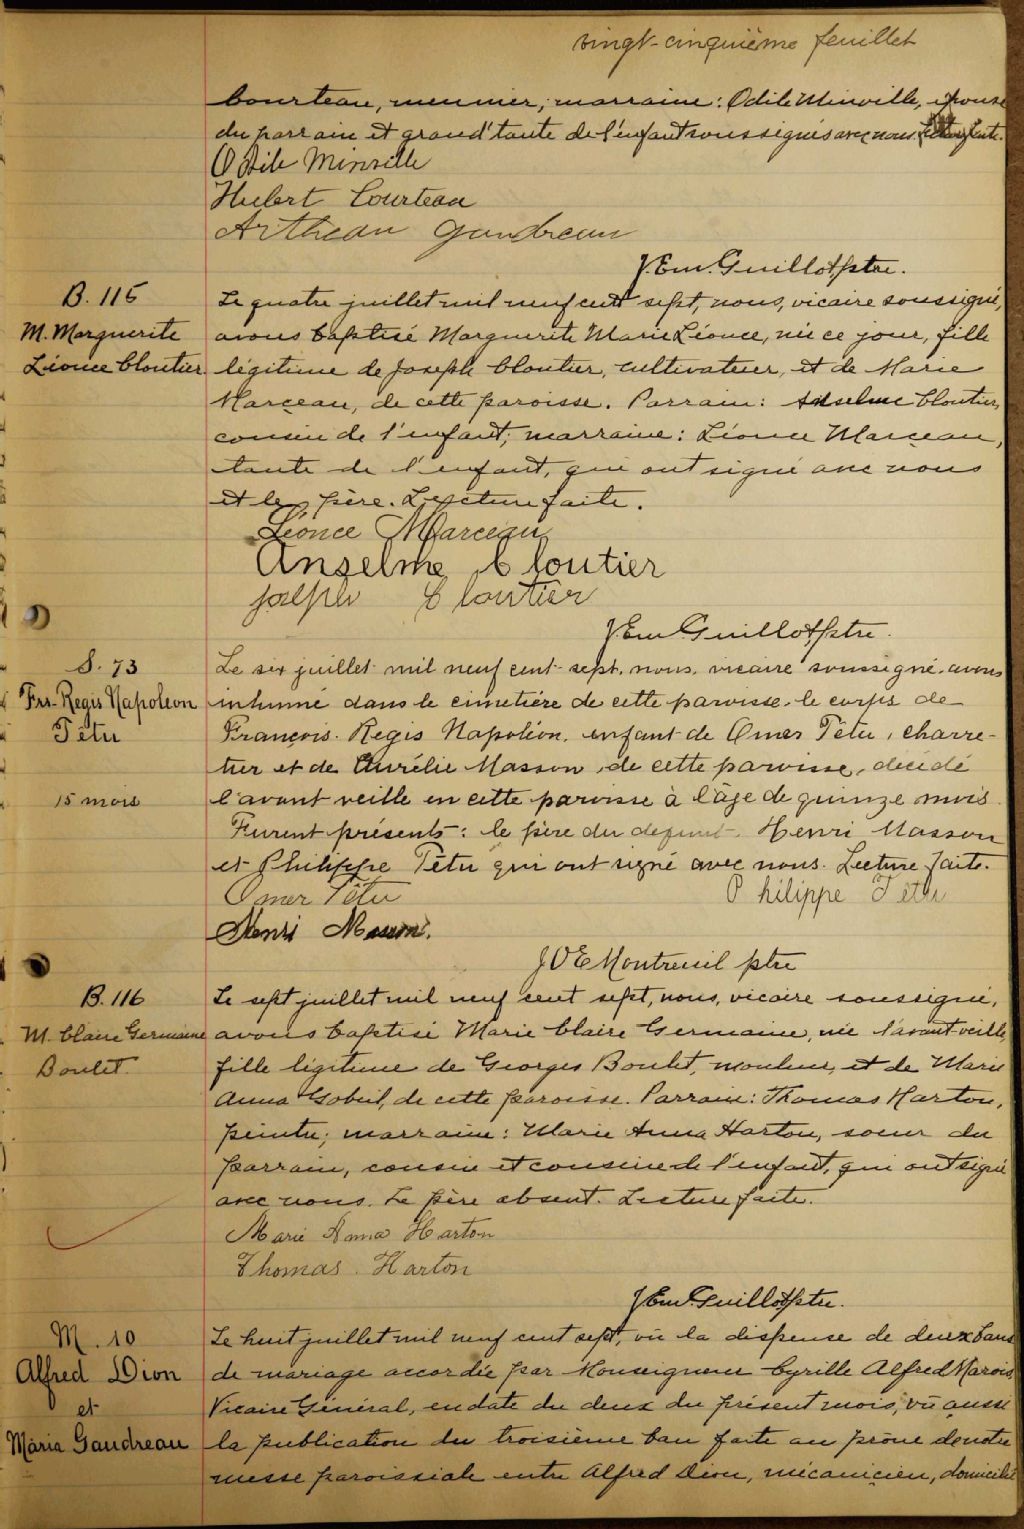 vingt-cinquième feuillet
Courteau, meunier; marraine: Odile Minville, épouse
du parrain et grand'tante de l'enfant soussignés avec nous. Lecture faite.
Odile Minville
Hubert Courteau
Arthean Gaudreau
J. Em. Guillot ptre.
B. 115
M. Marguerite
Léonce Cloutier
Le quatre juillet mil neuf cent sept, nous, vicaire soussigné,
avons baptisé Marguerite Marie Léonce, née ce jour, fille
légitime de Joseph Cloutier, cultivateur, et de Marie
Marceau, de cette paroisse. Parrain: Anselme Cloutier,
cousin de l'enfant; marraine: Léonce Marceau,
tante de l'enfant, qui ont signé avec nous
et le père. Lecture faite.
Léonce Marceau
Anselme Cloutier
Joseph Cloutier
J. Em. Guillot ptre.
S. 73
Frs-Regis Napoleon
Têtu
15 mois
Le six juillet mil neuf cent sept, nous, vicaire soussigné, avons
inhumé dans le cimetière de cette paroisse, le corps de
François. Regis Napoléon, enfant de Omer Têtu, charre-
tier et de Aurélie Masson, de cette paroisse, décédé
l'avant veille en cette paroisse à l'âge de quinze mois.
Furent présents: le père du defunt, Henri Masson
et Philippe Têtu qui ont signé avec nous. Lecture faite.
Omer Têtu
Philippe Têtu
Henri Masson.
J O E Montreuil ptre
B. 116
M. Claire Germaine
Boulet
Le sept juillet mil neuf cent sept, nous, vicaire soussigné,
avons baptisé Marie Claire Germaine, née l'avant-veille,
fille légitime de Georges Boulet, mouleur, et de Marie
Anna Gobeil, de cette paroisse. Parrain: Thomas Harton,
peintre; marraine: Marie Anna Harton, soeur du
parrain, cousin et cousine de l'enfant, qui ont signé
avec nous. Le père absent. Lecture faite.
Marie Anna Harton
Thomas Harton
J. Em. Guillot ptre.
M. 10
Alfred Dion
et
Maria Gaudreau
Le huit juillet mil neuf cent sept, vû la dispense de deux bans
de mariage accordée par Monseigneur Cyrille Alfred Marois,
Vicaire Général, en date du deux du présent mois, vû aussi
la publication du troisième ban faite au prône de notre
messe paroissiale entre Alfred Dion, mécanicien, domicilié